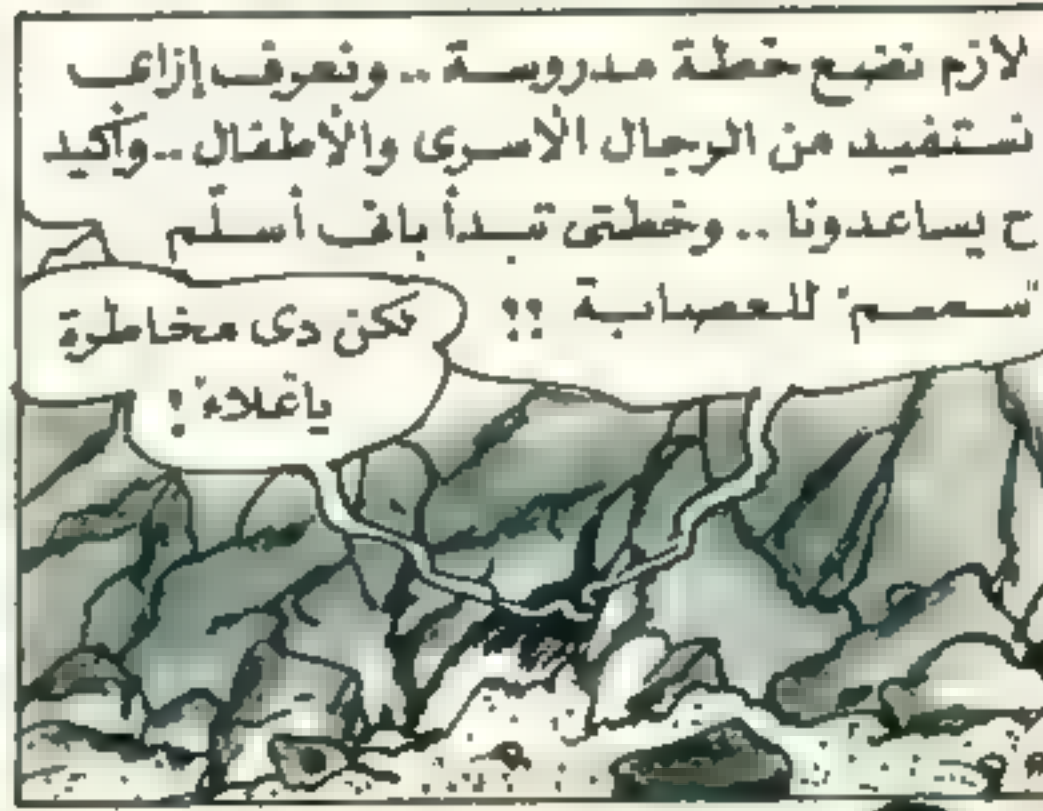 لازم نضع خطة مدروسة .. ونعرف إزاى
نستفيد من الرجال الأسرى والأطفال .. وأكيد
ح يساعدونا .. وخطتى تبدأ بإنى أسلّم
"سمسم" للعصابة !!
لكن دى مخاطرة
يا "علاء" !